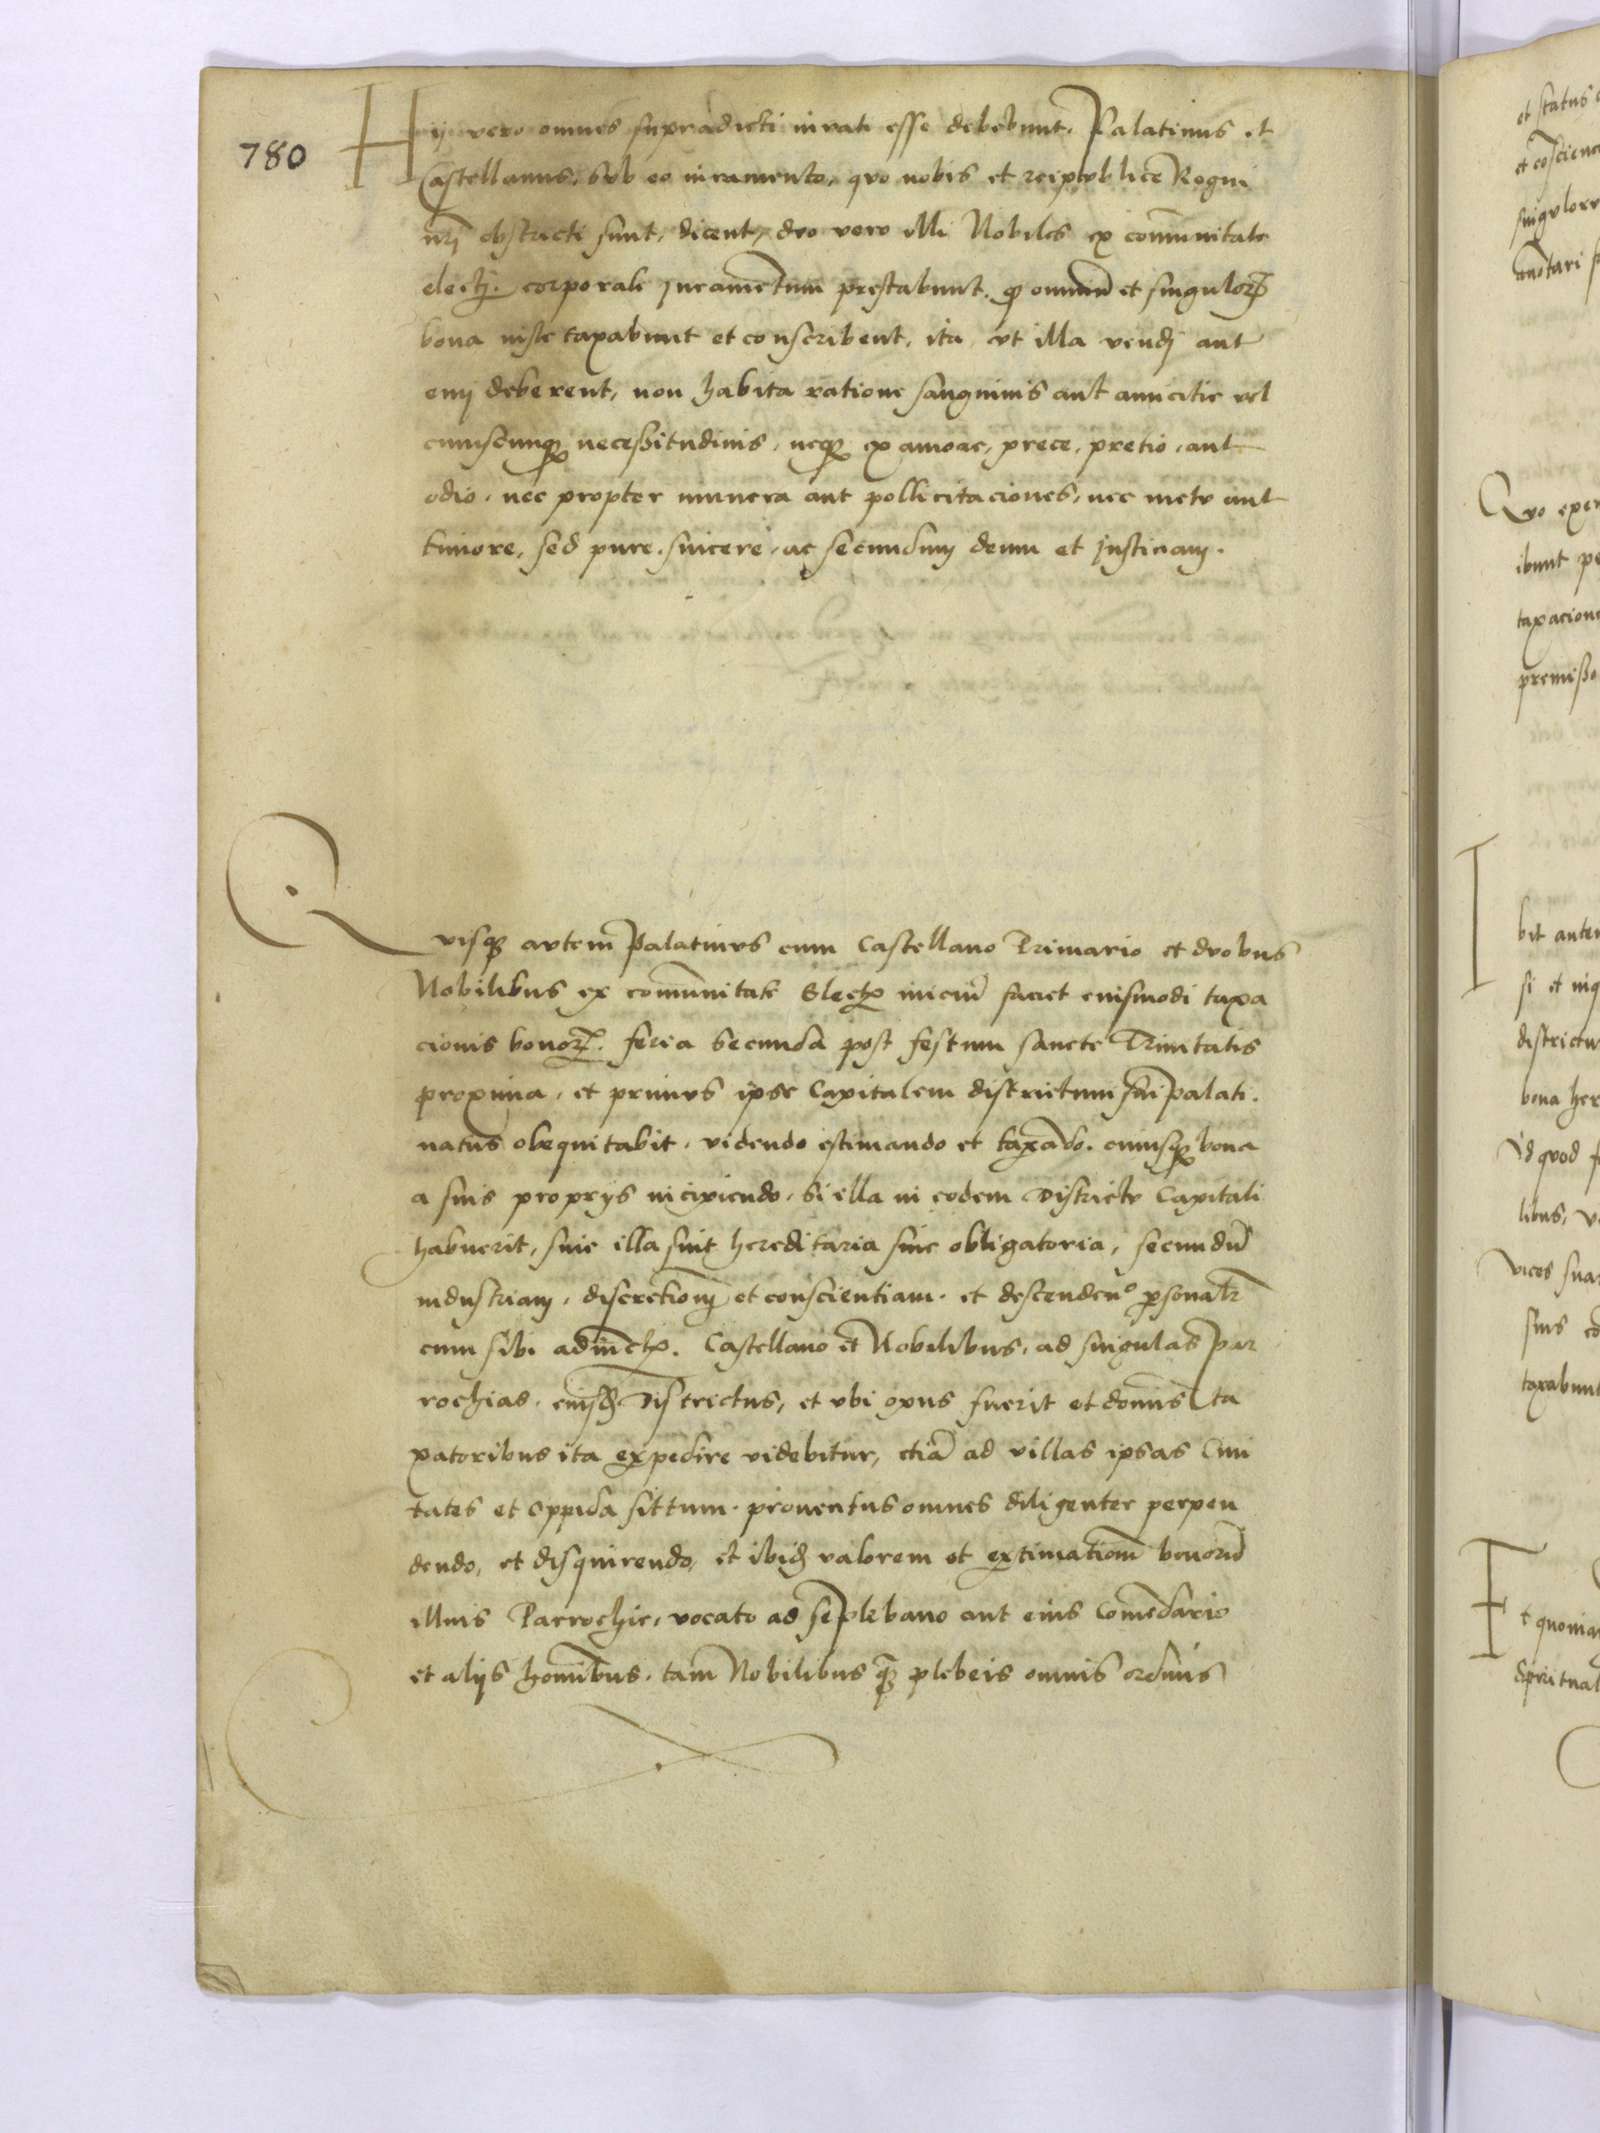 780
Hij vero omnes supradicti iurati esse debebunt. Palatinus et
Castellanus, sub eo iuramento, quo nobis et reipublice Regni
nrj obstricti sunt, dicent, duo vero illi Nobiles ex coṁunitate
electj. corporale Juramentum prestabunt. q̨ omniū et singulorꝫ
bona iuste taxabunt et conscribent, ita, vt illa vendj aut
emj deberent, non habita ratione sanguinis aut amicitie vel
cuiuscunqꝫ necessitudinis, neqꝫ ex amore, prece, pretio, aut
odio, nec propter munera aut pollicitaciones, nec metu aut
timore, sed pure, sincere, ac secundum deum et Justiciam.
Quisqꝫ autem Palatinus cum Castellano Primario et duobus
Nobilibus ex comunitate Electꝫ iniciū faciet eiusmodi taxa
cionis bonorꝫ. feria Secunda post festum sancte Trinitatis
proxima, et primus ipse Capitalem districtum sui Palati.
natus obequitabit, videndo estimando et taxādo. cuiusqꝫ bona
a suis proprijs incipiendo, si illa in eodem Districtu Capitali
habuerit, siue illa sint hereditaria siue obligatoria, secundū
industriam, discretionē et conscientiam. et descendent psonalr
cum sibi adiūctꝫ. Castellano et Nobilibus, ad singulas Par
rochias, eiusdē Districtus, et vbi opus fuerit et dominis ta
xatoribus ita expedire videbitur, etiā ad villas ipsas Ciui
tates et Oppida sittum. prouentus omnes diligenter perpen
dendo, et disquirendo, et ibidē valorem et extimationē bonorū
illius Parrochie, vocato ad se plebano aut eius Comēdario
et alijs hominibus. tam Nobilibus qꝫ plebeis omnis ordinis
et status
et consciencie
singulorum
annotari
Quo exper
ibunt pe
taxacione
premisso
I
bit autem
si et
districtu
bona her
Id quod
libus,
vices suas
suis co
taxabunt
Et quoniam
Spiritual